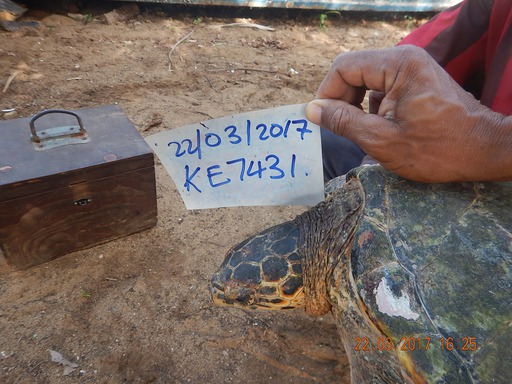 22/03/2017
KE7431.
22 03 2017 16 25